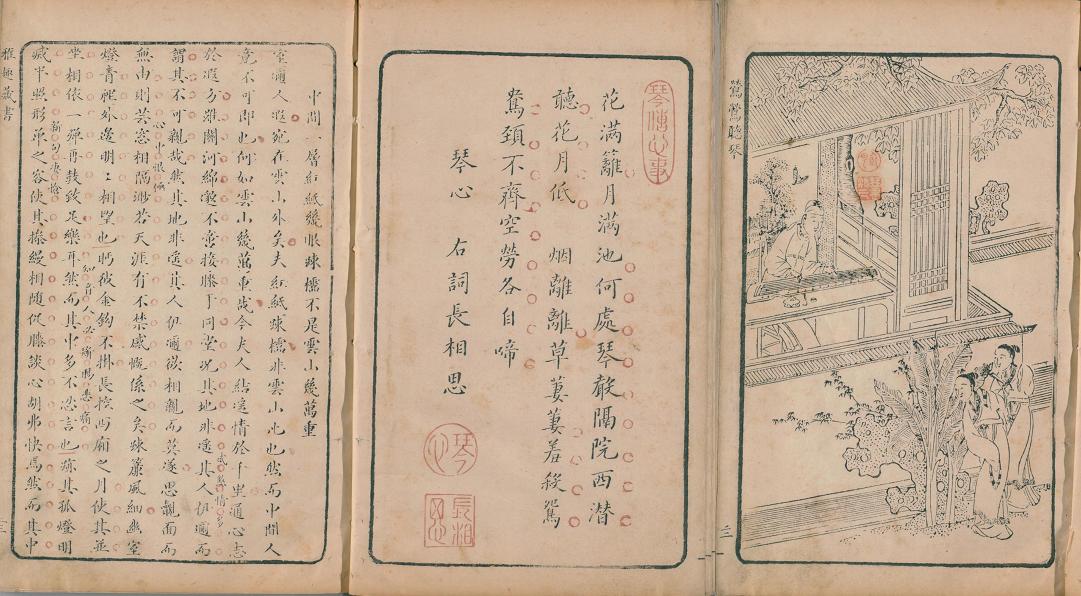 鶯鶯聽琴
三
琴傳心事
花滿籬月滿池何處琴聲隔院西潜
聽花月低　烟離離草萋萋羞殺鴛
鴦頸不齊空勞各自啼
琴心　右詞長相思
琴心
長相思
中間一層紅紙幾眼疎櫺不是雲山幾萬重
室邇人遐宛在雲山外矣夫紅紙疎櫺非雲山比也然而中間人
竟不可即也何如雲山幾萬重哉今夫人結遙情於千里通心志
於遐方雖關河綿邈不啻接膝于同堂况其地非遙其人伊邇而
謂其不可親哉然其地非遙其人伊邇欲相親而莫遂思觀面而
無由則芸窓相隔渺若天涯有不禁感慨係之矣疎簾風細幽室
燈青裡外邊明明相望也彼金鈎不掛長西廂之月使其並
坐相依一彈再鼓致足樂耳然而其中多不忍言也其孤燈明
滅半照形單之容使其操縵相随促膝談心胡弗快焉然而其中
雅趣藏書